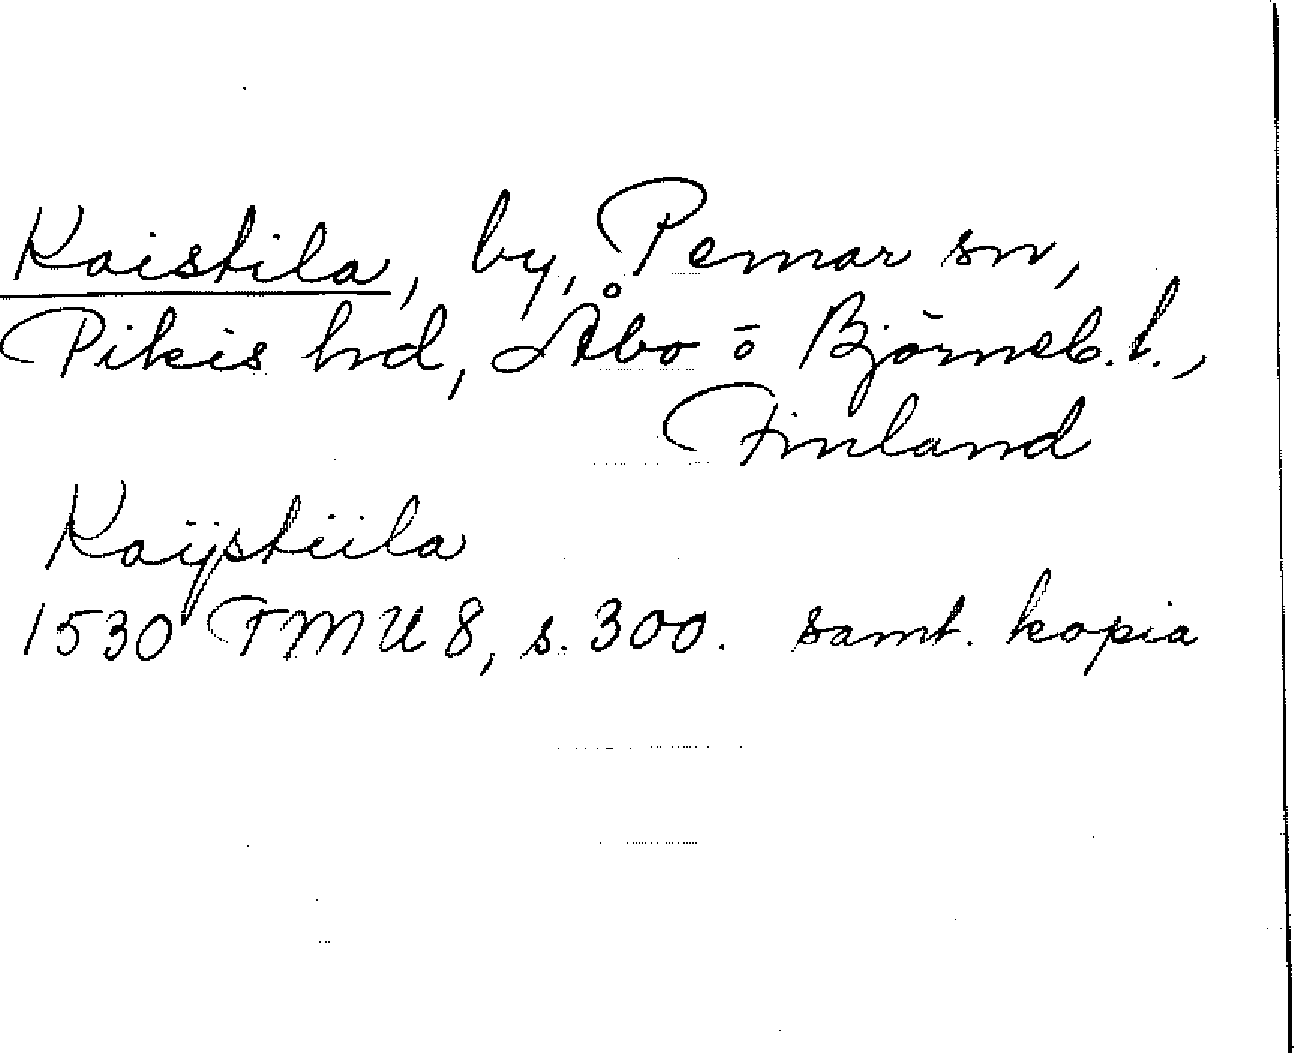 Kaistila, by, Pemar sn,
Pikis hd, Åbo o Björneb. l.,
Finland
Kaijstiila
1530 FMU 8, s. 300. samt. kopia